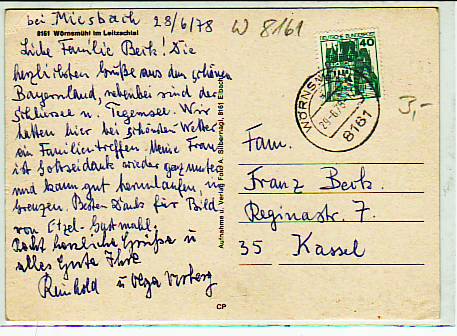 bei Miesbach 28/6/78
W 8161
8161 Wörnsmühl im Leitzachtal
Liebe Familie Berk! Die
herzlichsten Grüße aus dem schönen
Bayernland, nebenbei sind der
Schliersee u. Tegernsee. Wir
hatten hier bei schönstem Wetter
ein Familientreffen. Meine Frau
ist Gottseidank wieder ganz munter
und kann gut herumlaufen, in
Grenzen. Besten Dank für Bild
von Etzel-Gastmahl.
Recht herzliche Grüße u
alles Gute Ihre
Reinhold u
DEUTSCHE BUNDESPOST
40
WÖRNSMÜHL
8161
3,-
Fam.
Franz Berk.
Reginastr. 7.
35 Kassel
Aufnahme u. Verlag Foto A. Silbernagl, 8161 Elbach
CP